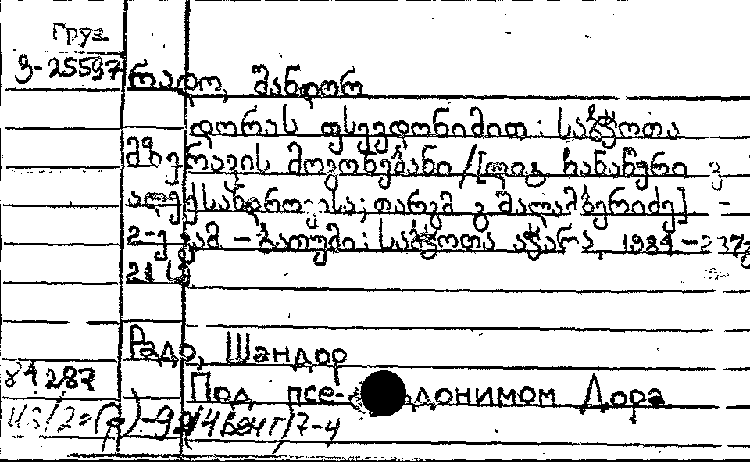 Груз
3-25597
რადო, შანდორ
დორას ფსევდონიმით : საბჭოთა
მზვერავის მოგონებანი/[ლიტ ჩანაწერი ვ
ალექსანდროვისა; თარგმ გ მალამბერიძე] -
2-ე გამ - ბათუმი : საბჭოთა აჭარა, 1984 - 237გ
21 სმ
Радо, Шандор
84 287
Под псе- донимом Дора